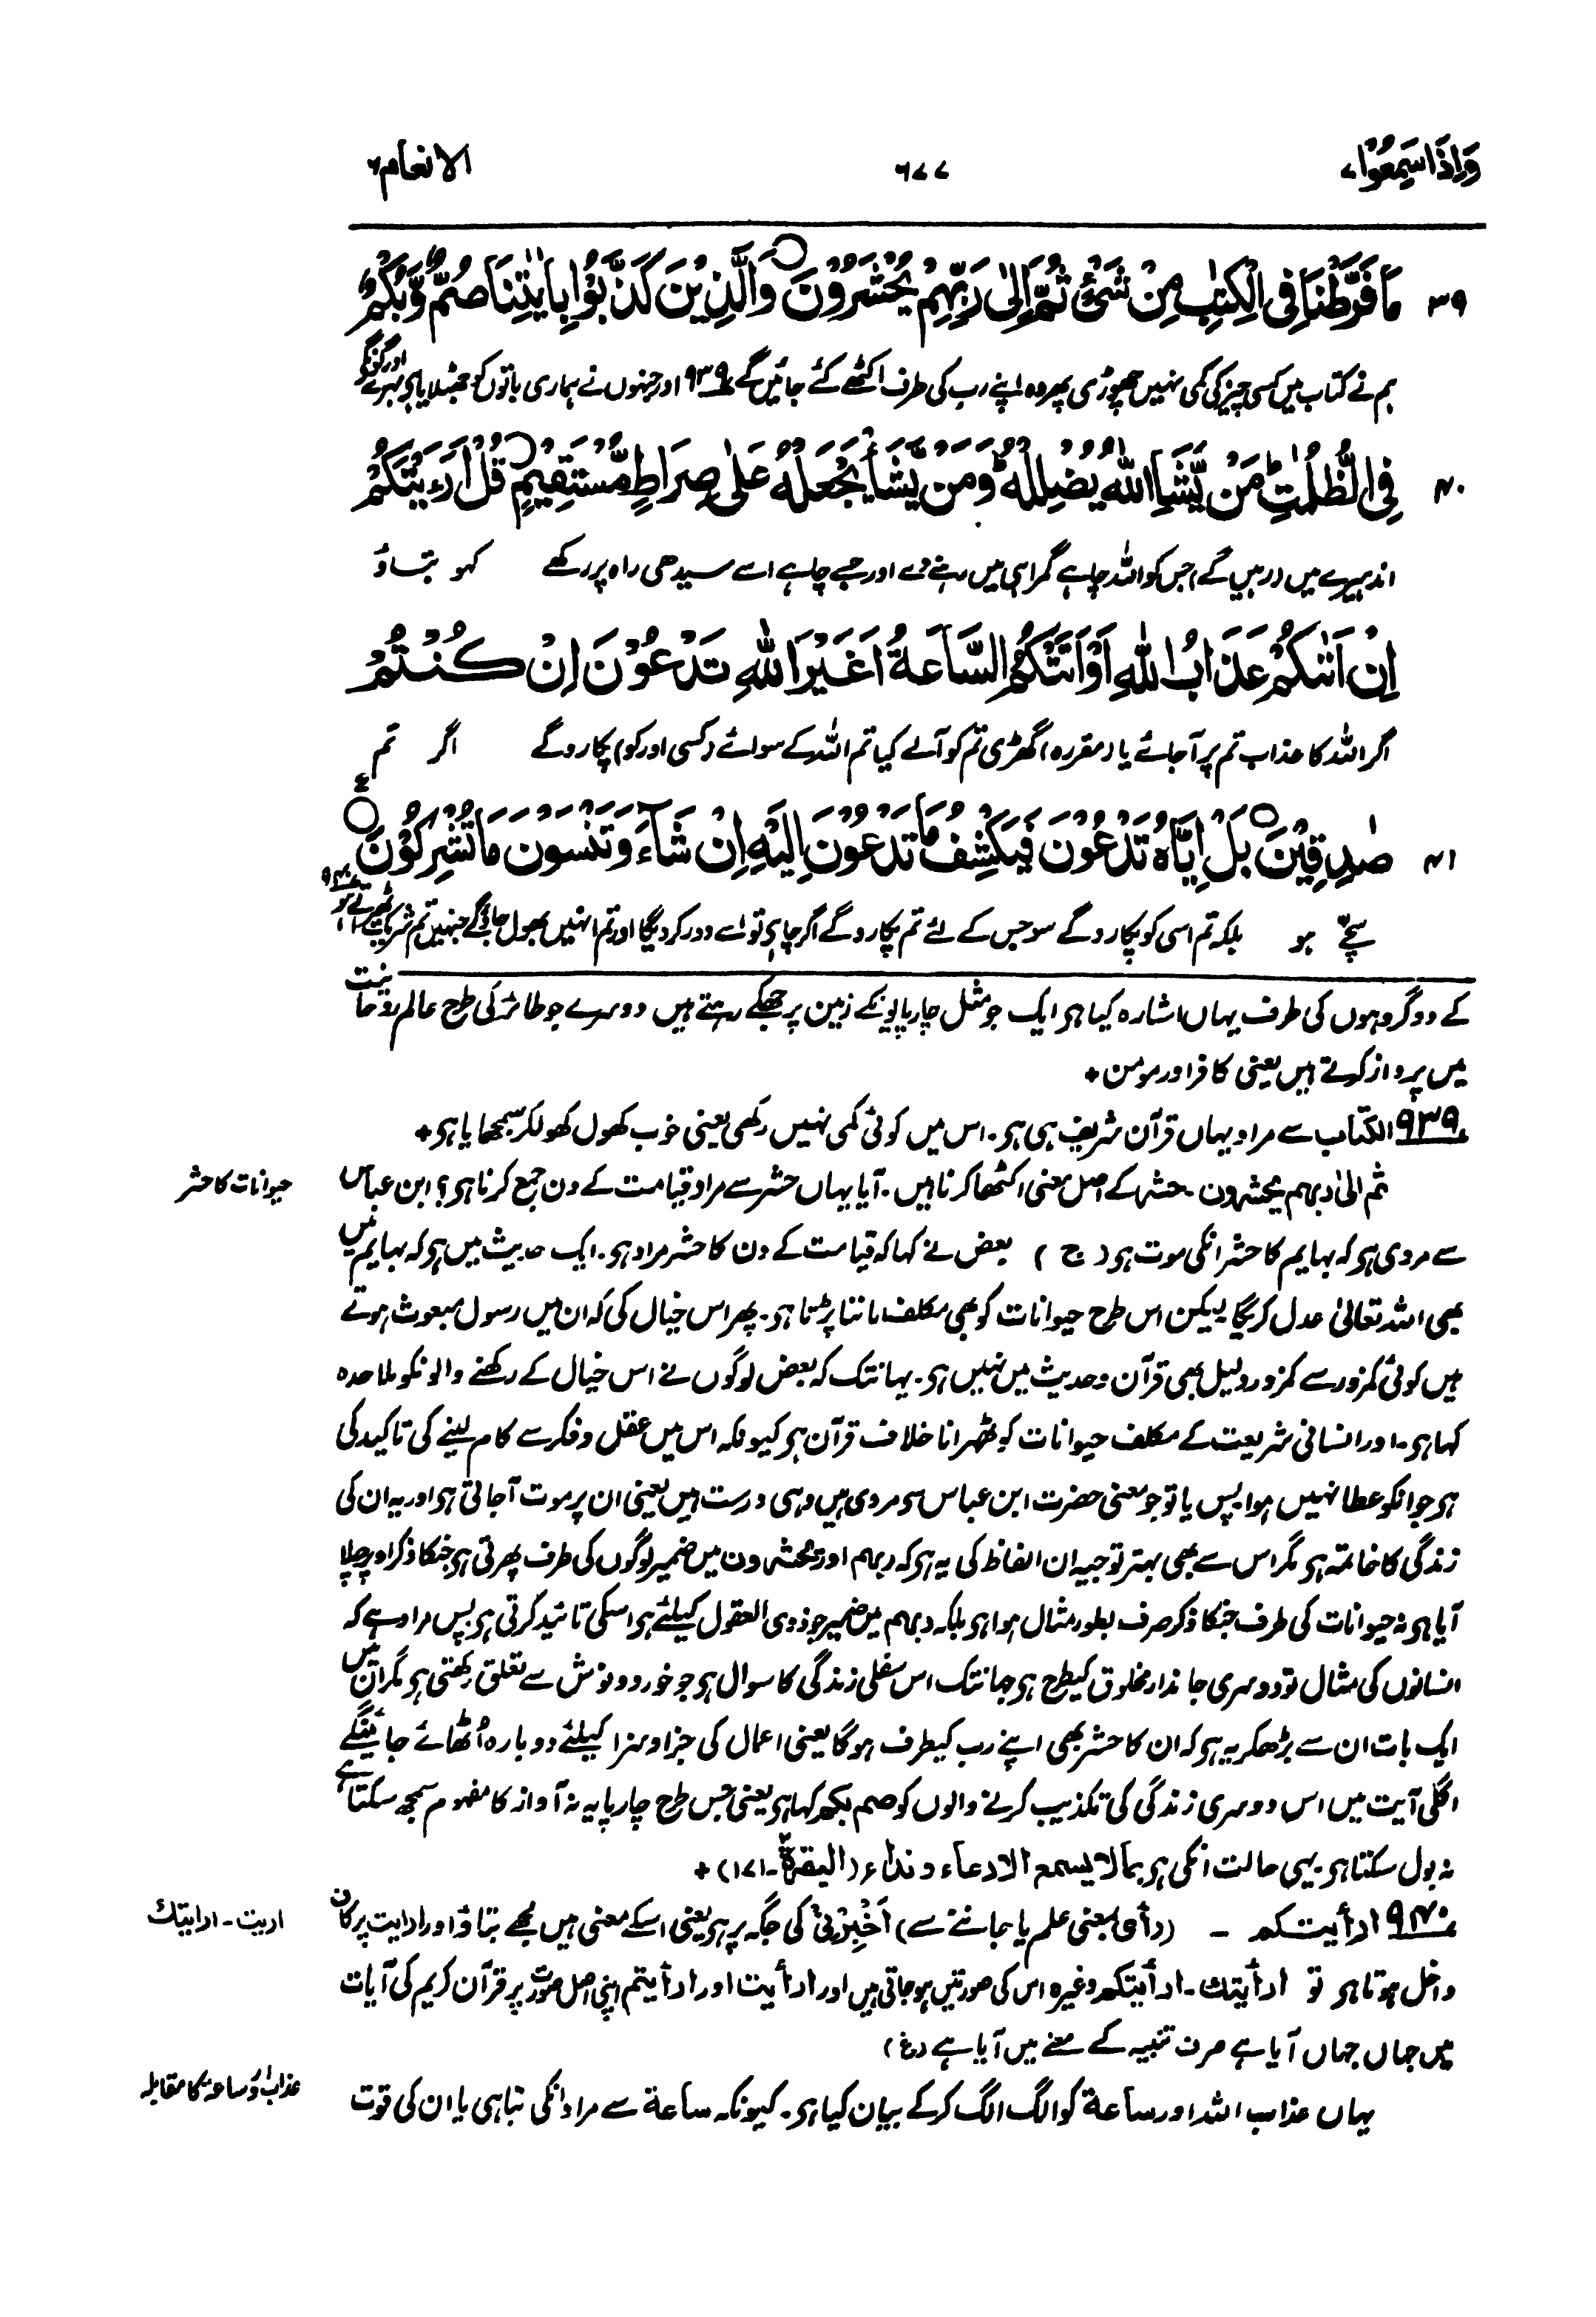 وَاِذَا سَمِعُوْا ۷
۶۷۷
الانعام ۶
۳۹ مَا فَرَّطْنَا فِی الْکِتٰبِ مِنْ شَیْءٍ ثُمَّ اِلٰی رَبِّهِمْ یُحْشَرُوْنَ ○ وَالَّذِیْنَ کَذَّبُوْا بِاٰیٰتِنَا صُمٌّ وَّبُکْمٌ
ہم نے کتاب میں کسی چیز کی کمی نہیں چھوڑی پھر وہ اپنے رب کی طرف اکٹھے کئے جائیں گے ۹۳۹ اور جنہوں نے ہماری باتوں کو جھٹلایا ہی بہرے اور گونگے
۴۰ فِی الظُّلُمٰتِ ؕ مَنْ یَّشَاِ اللّٰهُ یُضْلِلْهُ ؕ وَمَنْ یَّشَاْ یَجْعَلْهُ عَلٰی صِرَاطٍ مُّسْتَقِیْمٍ ○ قُلْ اَرَءَیْتَکُمْ
اندہیرے میں (رہیں گے) جس کو اللہ چاہے گمراہی میں رہنے دے اور جسے چاہے اسے سیدھی راہ پر رکھے کہو بتاؤ
اِنْ اَتٰکُمْ عَذَابُ اللّٰهِ اَوْ اَتَتْکُمُ السَّاعَةُ اَغَیْرَ اللّٰهِ تَدْعُوْنَ اِنْ کُنْتُمْ
اگر اللہ کا عذاب تم پر آجائے یا (مقررہ) گھڑی تم کو آلے کیا تم اللہ کے سوائے (کسی اور کو) پکارو گے اگر تم
۴۱ صٰدِقِیْنَ ○ بَلْ اِیَّاهُ تَدْعُوْنَ فَیَکْشِفُ مَا تَدْعُوْنَ اِلَیْهِ اِنْ شَآءَ وَتَنْسَوْنَ مَا تُشْرِکُوْنَ ○ ع
سچے ہو بلکہ تم اسی کو پکارو گے سو جس کے لئے تم پکارو گے اگر چاہی تو اسے دور کر دیگا اور تم انہیں بھول جاؤ گے جنہیں تم شریک ٹھیراتے ہو ۹۴۰
کے دو گروہوں کی طرف یہاں اشارہ کیا ہی ایک جو مثل چارپایونکے زمین پر جھکے رہتے ہیں دوسرے جو طائر کی طرح عالم روحانیت
میں پرواز کرتے ہیں یعنی کافر اور مومن +
۹۳۹ الکتاب سے مراد یہاں قرآن شریف ہی ہی۔ اس میں کوئی کمی نہیں رکھی یعنی خوب کھول کھولکر سمجھایا ہی +
ثم الیٰ ربھم یحشرون۔ حشر کے اصل معنی اکٹھا کرنا ہیں۔ آیا یہاں حشر سے مراد قیامت کے دن جمع کرنا ہی؟ ابن عباس
حیوانات کا حشر
سے مروی ہی کہ بہایم کا حشر انکی موت ہی (ج) بعض نے کہا کہ قیامت کے دن کا حشر مراد ہی۔ ایک حدیث میں ہی کہ بہایم میں
بھی اللہ تعالیٰ عدل کریگا لیکن اس طرح حیوانات کو بھی مکلف ماننا پڑتا ہی۔ پھر اس خیال کی کہ ان میں رسول مبعوث ہوتے
ہیں کوئی کمزور سے کمزور دلیل بھی قرآن و حدیث میں نہیں ہی۔ یہانتک کہ بعض لوگوں نے اس خیال کے رکھنے والونکو ملاحدہ
کہا ہی۔ اور انسانی شریعت کے مکلف حیوانات کو ٹھہرانا خلاف قرآن ہی کیونکہ اس میں عقل و فکر سے کام لینے کی تاکید کی
ہی جو انکو عطا نہیں ہوا۔ پس یا تو جو معنی حضرت ابن عباس سی مروی ہیں وہی درست ہیں یعنی ان پر موت آجاتی ہی اور یہ ان کی
زندگی کا خاتمہ ہی مگر اس سے بھی بہتر توجیہ ان الفاظ کی یہ ہی کہ ربھم اور یحشرون میں ضمیر لوگوں کی طرف پھرتی ہی جنکا ذکر اوپر چلا
آیا ہی نہ حیوانات کی طرف جنکا ذکر صرف بطور مثال ہوا ہی بلکہ ربھم میں ضمیر جو ذوی العقول کیلئے ہی اسکی تائید کرتی ہی پس مراد ہے کہ
انسانوں کی مثال تو دوسری جاندار مخلوق کیطرح ہی جہانتک اس سفلی زندگی کا سوال ہی جو خور و نوش سے تعلق رکھتی ہی مگر ان میں
ایک بات ان سے بڑھکر یہ ہی کہ ان کا حشر بھی اپنے رب کیطرف ہوگا یعنی اعمال کی جزا و سزا کیلئے دوبارہ اُٹھائے جائینگے
اگلی آیت میں اس دوسری زندگی کی تکذیب کرنے والوں کو صم بکم کہا ہی یعنی جس طرح چارپایہ نہ آواز کا مفہوم سمجھ سکتا ہے
نہ بول سکتا ہی یہی حالت انکی ہی بما لا یسمع الا دعاء و نداء (البقرة۲-۱۷۱) +
۹۴۰ ارأیتکم – (رأی بمعنی علم یا جاننے سے) اَخْبِرْنِیْ کی جگہ پر ہی یعنی اسکے معنی ہیں مجھے بتاؤ اور ارایت پر کاف
اریت - ارایتك
داخل ہوتا ہی تو ارأیتك - ارأیتکم وغیرہ اس کی صورتیں ہو جاتی ہیں اور ارأیت اور ارأیتم اپنی اصل صورت پر قرآن کریم کی آیات
میں جہاں جہاں آیا ہے صرف تنبیہ کے معنے میں آیا ہے (غ)
یہاں عذاب اللہ اور ساعة کو الگ الگ کرکے بیان کیا ہی۔ کیونکہ ساعة سے مراد انکی تباہی یا ان کی قوت
عذاب اور ساعۃ کا مقابلہ